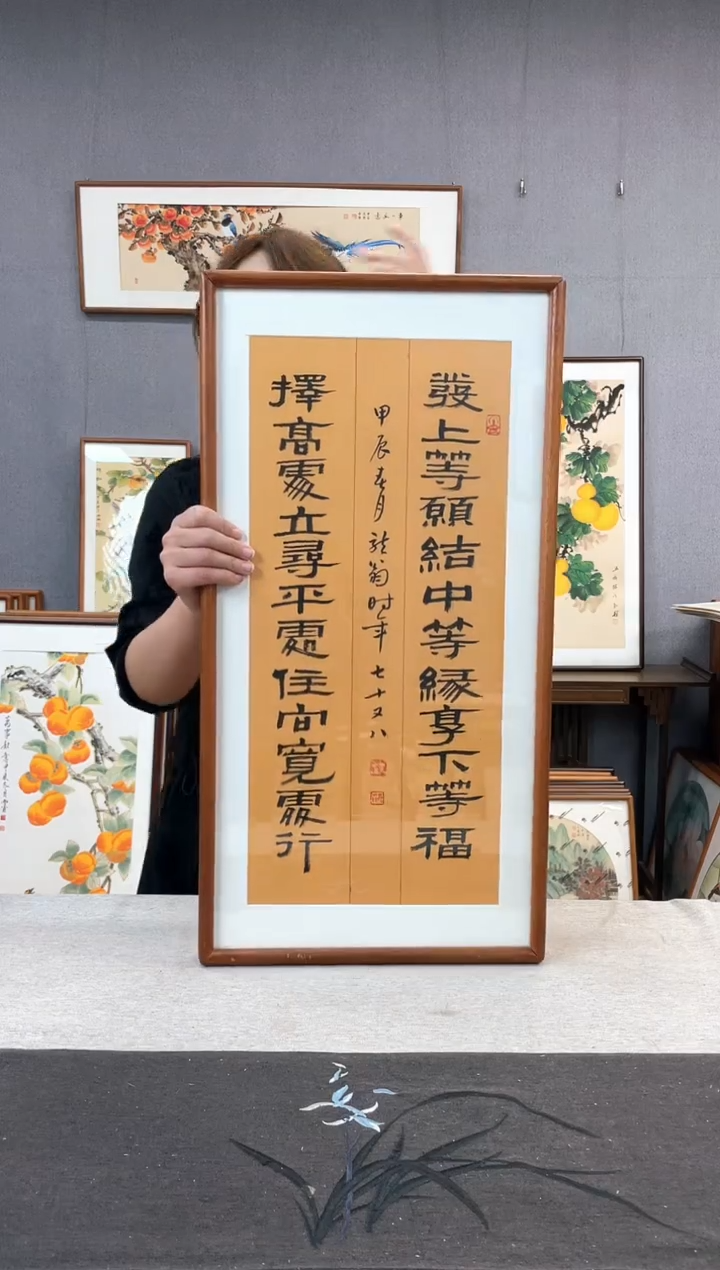 發上等願結中等緣享下等福
甲辰春月龍翁时年七十又八
擇高處立尋平處住向寬處行